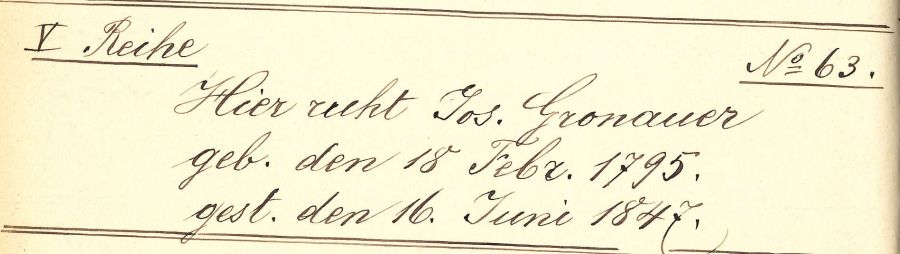 V Reihe
No 63.
Hier ruht Jos. Gronauer
geb. den 18 Febr. 1795.
gest. den 16. Juni 1847.